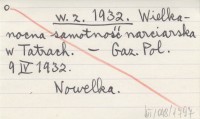 w.z. 1932. Wielka-
nocna samotność narciarska
w Tatrach. — Gaz. Pol.
9 IV 1932.
Nowelka.